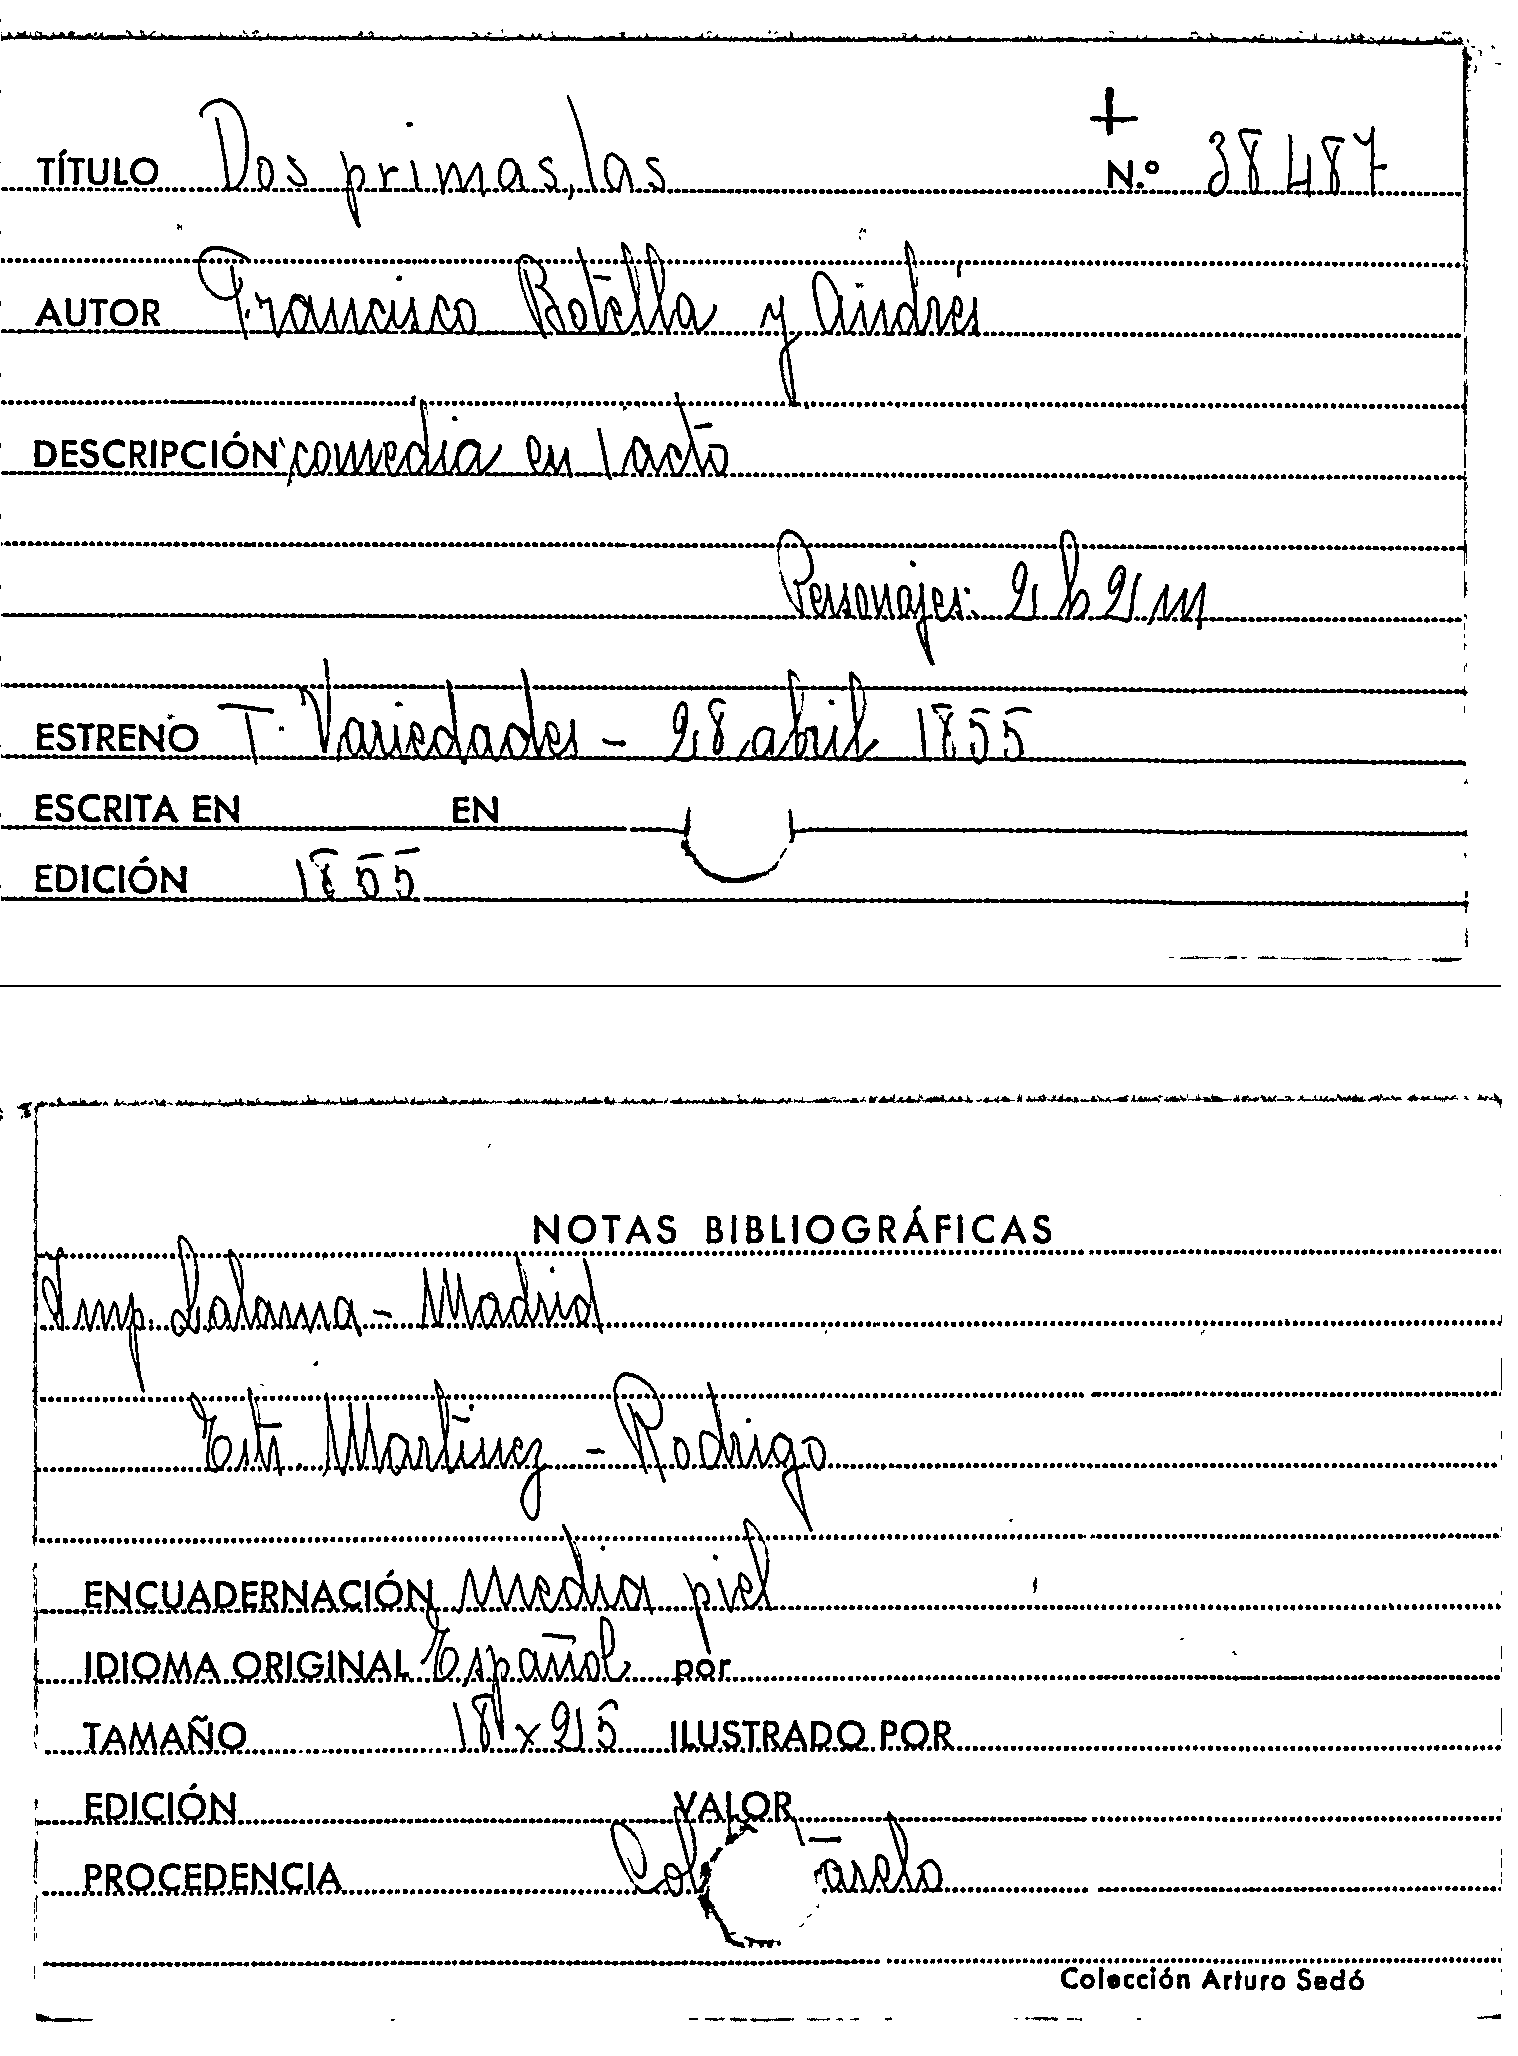 +
TÍTULO Dos primas, las N.º 38487
AUTOR Francisco Botella y Andrés
DESCRIPCIÓN comedia en 1 acto
Personajes: 2 h 2 m
ESTRENO T. Variedades - 28 abril 1855
ESCRITA EN EN
EDICIÓN 1855
NOTAS BIBLIOGRÁFICAS
Imp. Lalama - Madrid
Estr. Martínez - Rodrigo
ENCUADERNACIÓN media piel
IDIOMA ORIGINAL Español por
TAMAÑO 18 x 215 ILUSTRADO POR
EDICIÓN VALOR
PROCEDENCIA
Colección Arturo Sedó